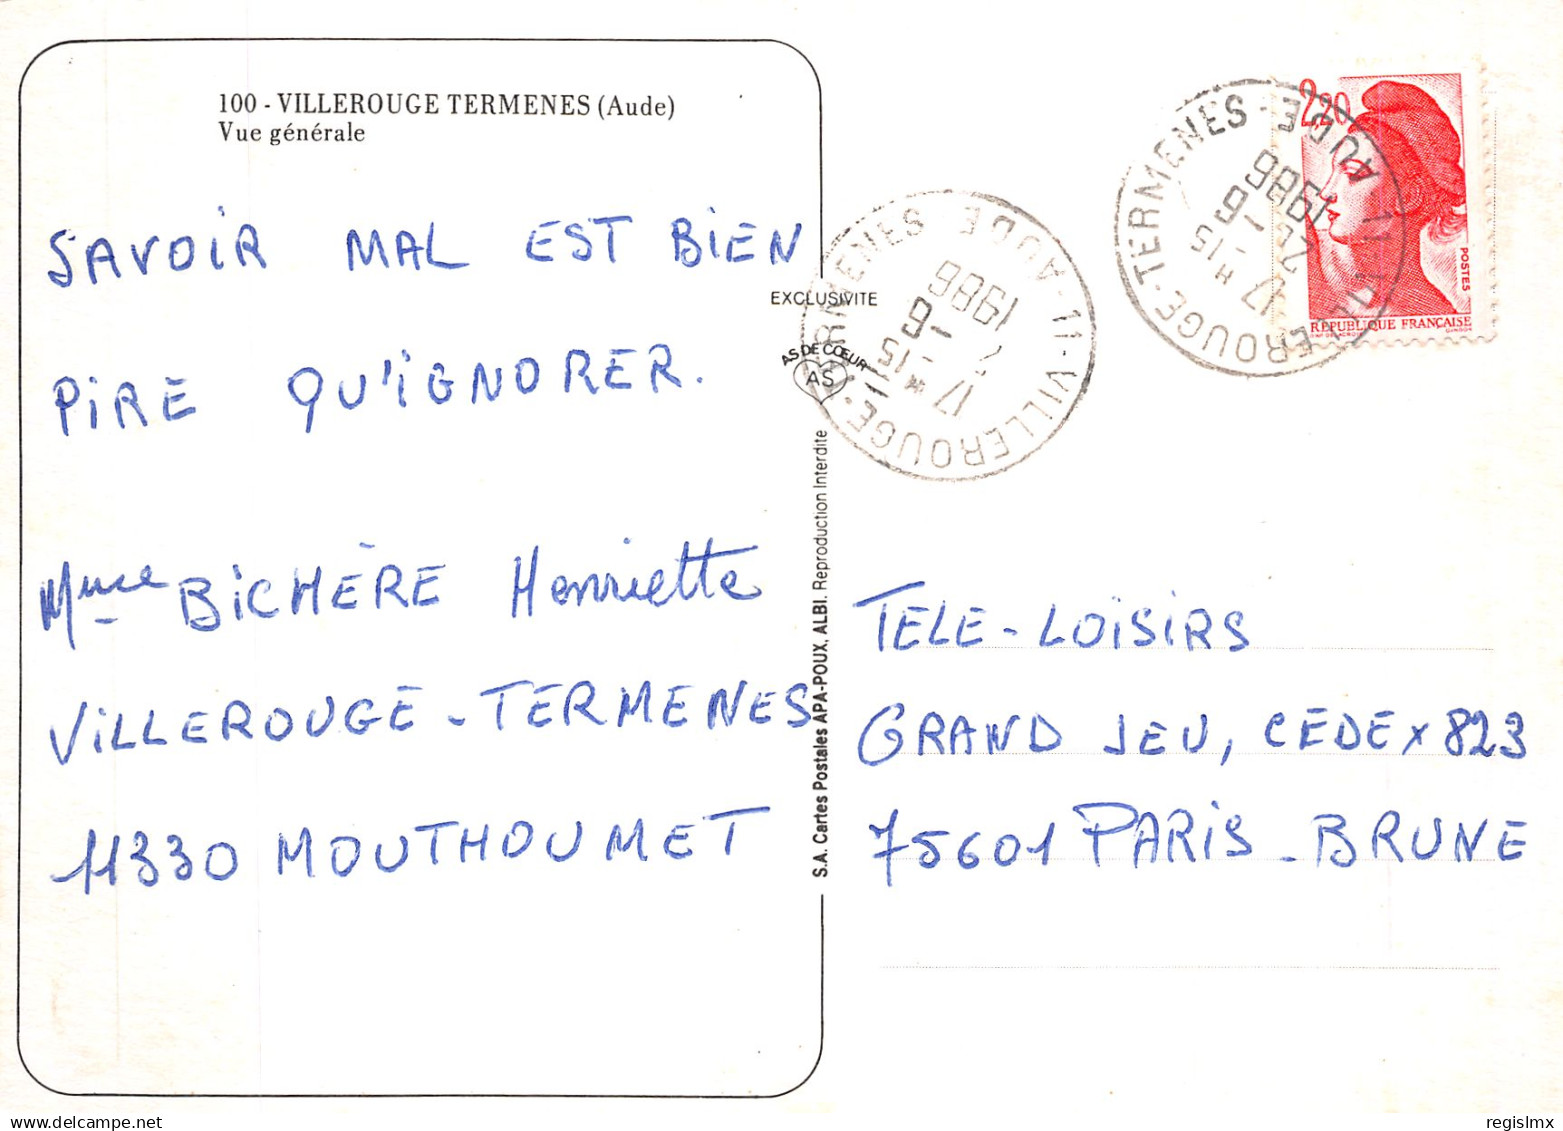 100 - VILLEROUGE TERMENES (Aude)
Vue générale
SAVOIR MAL EST BIEN
PIRE QU'IGNORER.
Mme BICHÈRE Henriette
VILLEROUGE - TERMENES
11330 MOUTHOUMET
EXCLUSIVITE
AS DE CŒUR
AS
S.A. Cartes Postales APA-POUX, ALBI. Reproduction Interdite
11 - VILLEROUGE - TERMENES AUDE
17 H 15
- 6
1986
11 VILLEROUGE - TERMENES - AUDE
17 H 15
2 - 6
1986
2,20
POSTES
REPUBLIQUE FRANÇAISE
TELE - LOISIRS
GRAND JEU, CEDEX 823
75601 PARIS - BRUNE
regislmx